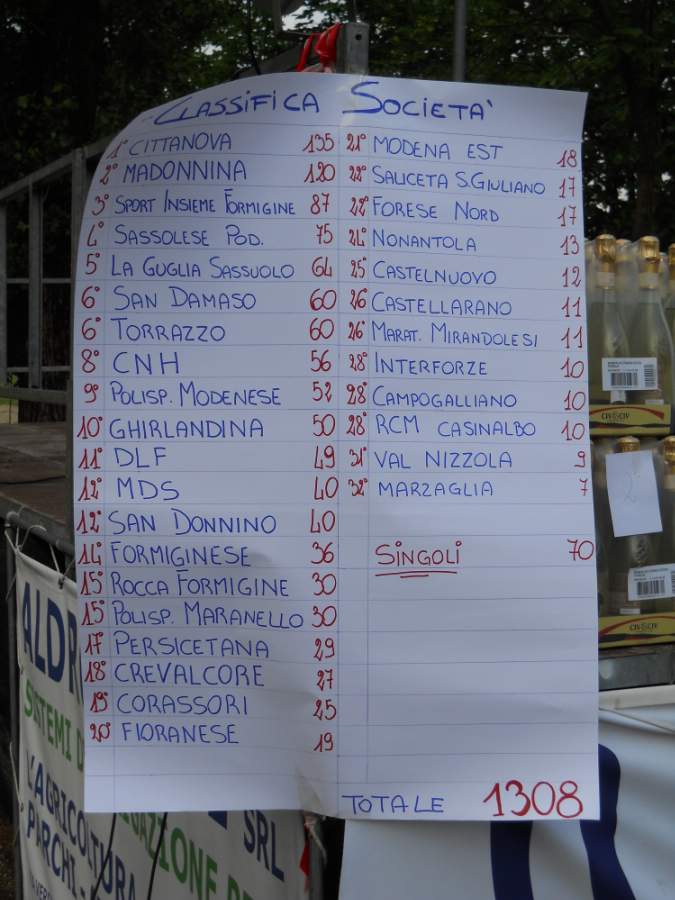 CLASSIFICA SOCIETÀ
1° CITTANOVA 135
2° MADONNINA 120
3° SPORT INSIEME FORMIGINE 87
4° SASSOLESE POD. 75
5° LA GUGLIA SASSUOLO 64
6° SAN DAMASO 60
6° TORRAZZO 60
8° CNH 56
9° POLISP. MODENESE 52
10° GHIRLANDINA 50
11° DLF 49
12° MDS 40
12° SAN DONNINO 40
14° FORMIGINESE 36
15° ROCCA FORMIGINE 30
15° POLISP. MARANELLO 30
17° PERSICETANA 29
18° CREVALCORE 27
19° CORASSORI 25
20° FIORANESE 19
21° MODENA EST 18
22° SALICETA S.GIULIANO 17
22° FORESE NORD 17
24° NONANTOLA 13
25° CASTELNUOVO 12
26° CASTELLARANO 11
26° MARAT. MIRANDOLESI 11
28° INTERFORZE 10
28° CAMPOGALLIANO 10
28° RCM CASINALBO 10
31° VAL NIZZOLA 9
32° MARZAGLIA 7
SINGOLI 70
TOTALE 1308
ALDR
SISTEMI D
L'AGRICOLTURA
PARCHI -
GAZIONE PE
SRL
CIV&CIV
2°
CIV&CIV